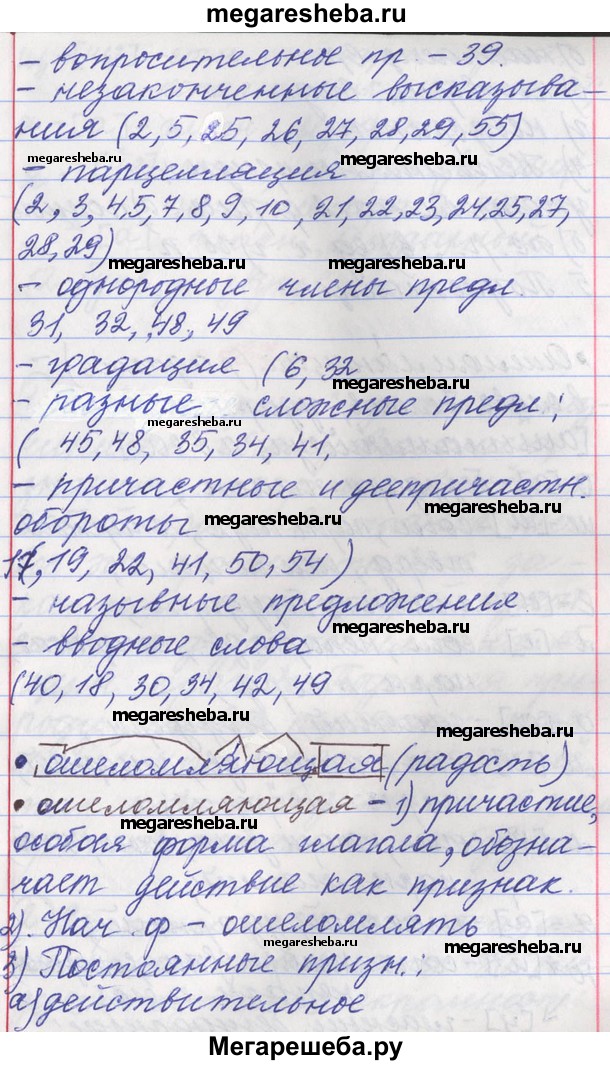 megaresheba.ru
– вопросительное пр. – 39.
– незаконченные высказыва-
ния (2, 5, 25, 26, 27, 28, 29, 55)
megaresheba.ru megaresheba.ru
– парцелляция
(2, 3, 4, 5, 7, 8, 9, 10, 21, 22, 23, 24, 25, 27,
28, 29)
megaresheba.ru megaresheba.ru
– однородные члены предл.
31, 32, 48, 49
– градация (6, 32
megaresheba.ru
– разные сложные предл;
megaresheba.ru
( 45, 48, 35, 34, 41,
– причастные и деепричастн.
обороты
megaresheba.ru megaresheba.ru
17, 19, 22, 41, 50, 54)
– назывные предложения.
megaresheba.ru
– вводные слова
megaresheba.ru
(40, 18, 30, 34, 42, 49
megaresheba.ru
• ошеломляющая (радость)
• ошеломляющая – 1) причастие,
megaresheba.ru
особая форма глагола, обозна-
чает действие как признак.
2). Нач ф – ошеломлять
megaresheba.ru megaresheba.ru
3) Постоянные призн.:
а) действительное
megaresheba.ru
Мегарешеба.ру